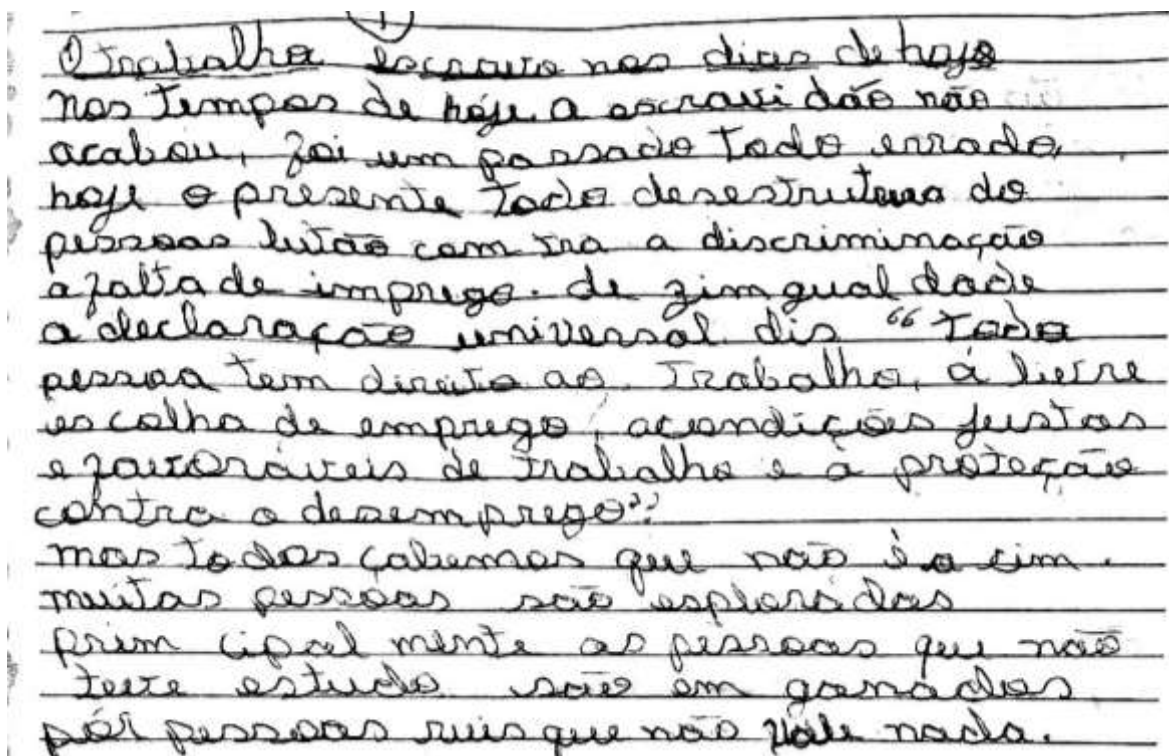 ①
O Trabalho escravo nos dias de hoje
nos tempos de hoje a escravi dão não
acabou, foi um passado todo errado,
hoje o presente todo desestrutura do
pessoas lutão com tra a discriminação
a falta de imprego. de zimgual dade
a declaração universal dis “Toda
pessoa tem direito ao Trabalho, á livre
escolha de emprego, acondições justas
e favoráveis de trabalho e à proteção
contra o desemprego”.
mas todos çabemos que não é a cim.
muitas pessoas são esploradas
prim cipal mente as pessoas que não
teve estudo são em ganados
por pessoas ruis que não vale nada.